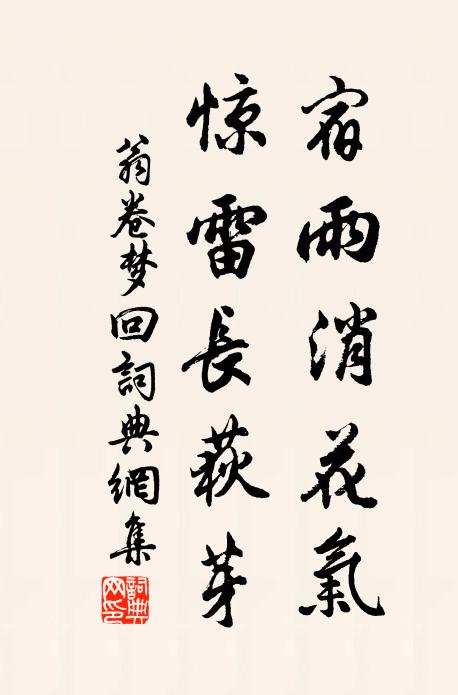 宿雨消花氣
惊雷長荻芽
翁卷梦回詞典網集
詞典网印